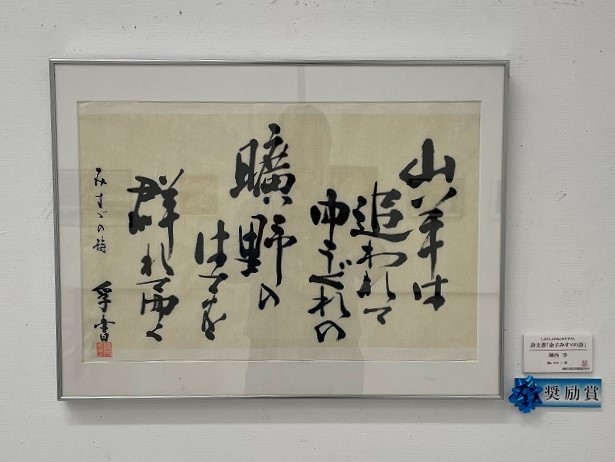 山羊は
追われて
ゆうぐれの
曠野の
はてを
群れてゆく
みすゞの詩
孚書
詩文書「金子みすゞの詩」
奨励賞